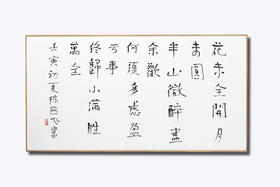 花未全開月
未圓
半山微醉盡
余歡
何須多慮盈
亏事
終歸小滿勝
萬全
壬寅初夏陈